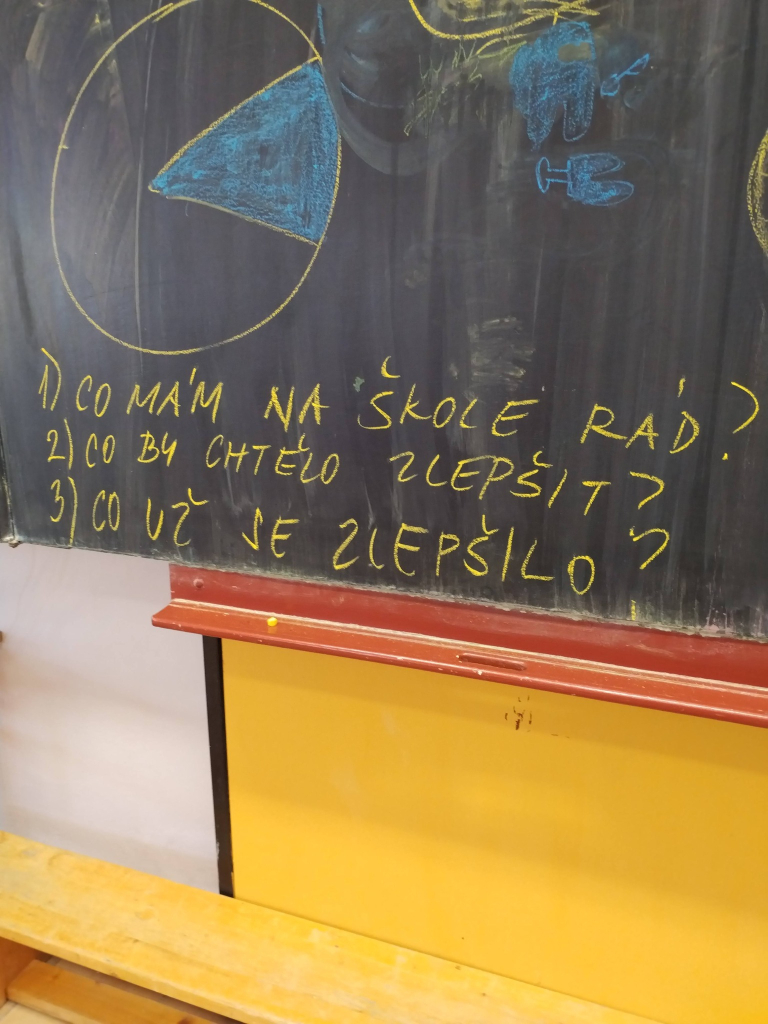 1) CO MÁM NA ŠKOLE RÁD?
2) CO BY CHTĚLO ZLEPŠIT?
3) CO UŽ SE ZLEPŠILO?